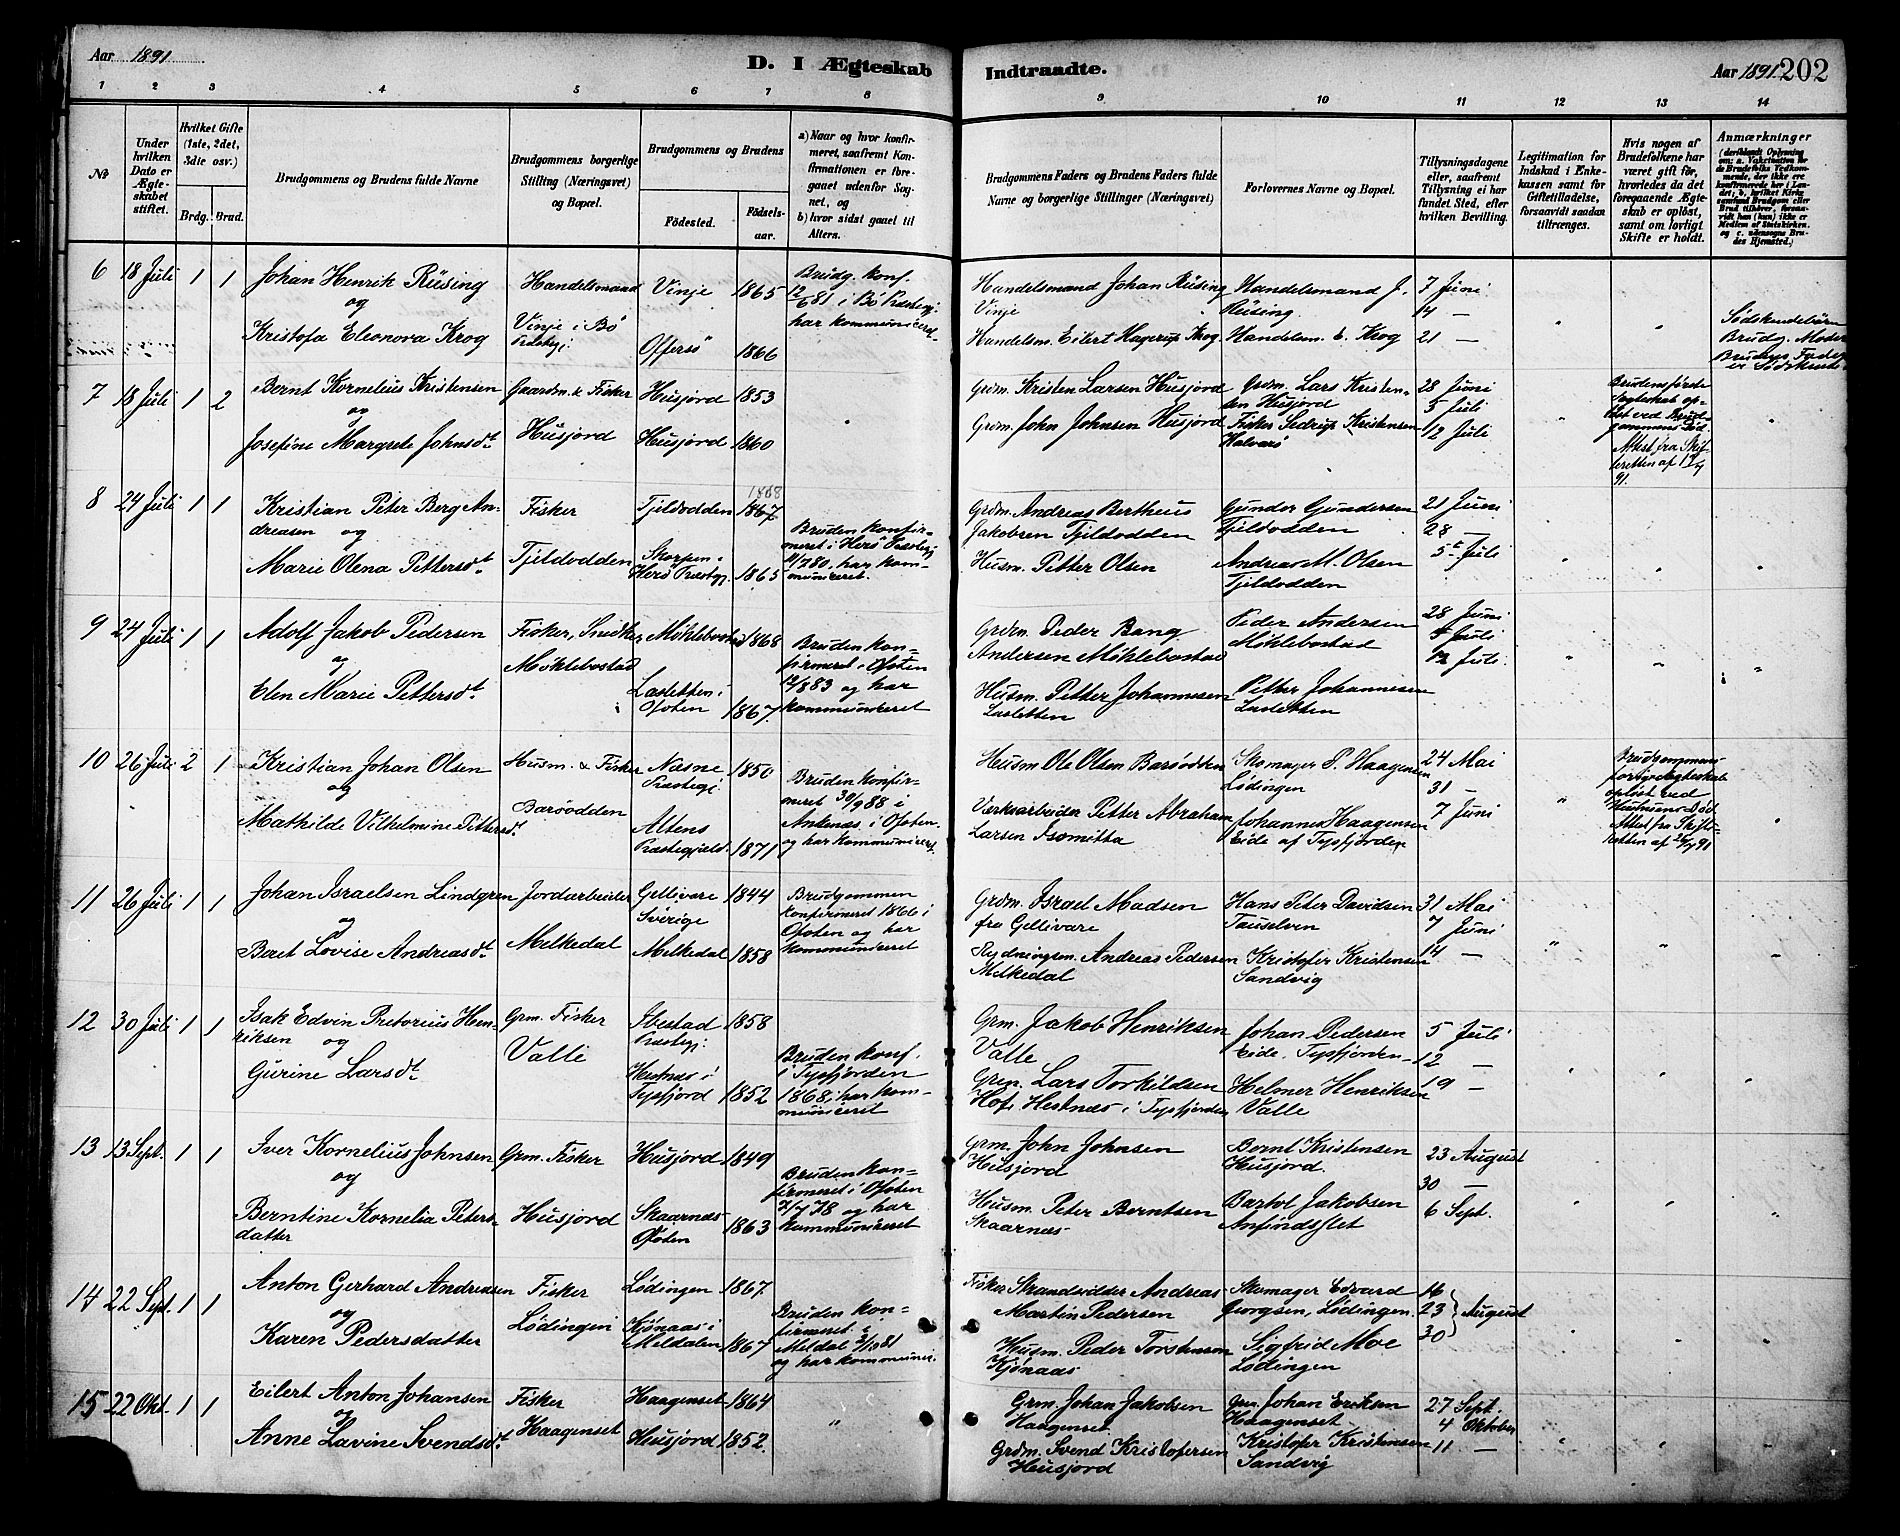 Aar 1891
D. I Ægteskab
Indtraadte.
Aar 1891 202
1 2 3 4 5 6 7 8
9 10 11 12 13 14
No
Under
hvilken
Dato er
Ægte-
skabet
stiftet.
Hvilket Gifte
(1ste, 2det,
3die osv.)
Brdg. Brud.
Brudgommens og Brudens fulde Navne
Brudgommens borgerlige
Stilling (Næringsvei)
og Bopæl.
Brudgommens og Brudens
Fødested.
Fødsels-
aar.
a) Naar og hvor konfir-
meret, saafremt Kon-
firmationen er fore-
gaaet udenfor Sog-
net, og
b) hvor sidst gaaet til
Alters.
Brudgommens Faders og Brudens Faders fulde
Navne og borgerlige Stillinger (Næringsvei)
Forlovernes Navne og Bopæl.
Tillysningsdagene
eller, saafremt
Tillysning ei har
fundet Sted, efter
hvilken Bevilling.
Legitimation for
Indskud i Enke-
kassen samt for
Giftetilladelse,
forsaavidt saadan
tiltrænges.
Hvis nogen af
Brudefolkene har
været gift før,
hvorledes da det
foregaaende Ægte-
skab er opløst,
samt om lovligt
Skifte er holdt.
Anmærkninger
(deriblandt Oplysning
om: a. Vakcination for
de Brudefolks Vedkom-
mende, der ikke ere
konfirmerede her i Lan-
det; b. hvilket Kirke
samfund Brudgom eller
Brud tilhører, forsaa-
vidt han (hun) ikke er
Medlem af Statskirken,
og c. udensogns Bru-
des Hjemsted.)
6 18 Juli 1 1
Johan Henrik Rüsing
og
Kristofa Eleonora Krog
Handelsmand
Vinje i Bø
Præstegj.
Vinje 1865
Offersø 1866
Brudg. konf.
12/6 81 i Bø Præstegj.
har kommuniceret.
Handelsmand Johan Rüsing
Vinje
Handelsm. Eilert Hagerup Krog
Handelsmand J.
Rüsing.
Handelsm. E. Krog
7 Juni
14 —
21 —
Sødskendebørn
Brudg. Moder
Brudens Fader
er Sødskende
7 18 Juli 1 2
Bernt Kornelius Kristensen
og
Josefine Margrete Johnsdt.
Gaardm. & Fisker
Husjord
Husjord 1853
Husjord 1860
Grdm. Kristen Larsen Husjord
Grdm. John Johnsen Husjord
Grdm. Lars Kristen-
sen Husjord
Fisker Sedrup Kristensen
Halvarø
28 Juni
5 Juli
12 Juli
Brudens første
Ægteskab op-
løst ved Brud-
gommens Død.
Attest fra Skif-
teretten af
91.
8 24 Juli 1 1
Kristian Peter Berg An-
dreasen og
Marie Olena Pettersdt.
Fisker
Tjeldodden
Tjeldodden 1868 1867
Skorpen i
Herø Præstegj. 1865
Bruden konfir-
meret i Herø Præstegj.
11/7 80, har kom-
municeret.
Grdm. Andreas Bertheus
Jakobsen Tjeldodden
Husm. Petter Olsen
Gunder Gundersen
Tjeldodden
Andreas M. Olsen
Tjeldodden
21 Juni
28 —
5t. Juli
9 24 Juli 1 1
Adolf Jakob Pedersen
og
Elen Marie Pettersdt.
Fisker, Snedker
Møklebostad
Møklebostad 1868
Lastetten i
Ofoten 1867
Bruden kon-
firmeret i Ofoten
12/8 83 og har
kommuniceret
Grdm. Peder Bang
Andersen Møklebostad
Husm. Petter Johannesen
Lastetten
Peder Andersen
Møklebostad
Petter Johannesen
Lastetten
28 Juni
5 Juli
12 Juli.
10 26 Juli 2 1
Kristian Johan Olsen
og
Mathilde Vilhelmine Pettersdt.
Husm. & Fisker
Barøodden
Næsne
Præstegj. 1850
Altens
Præstegjeld. 1871
Bruden konfir-
meret 30/9 88 i
Ankenæs i Ofoten
og har kommuniceret.
Husm. Ole Olsen Barøodden
Værksarbeider Petter Abraham
Larsen
Skomager P. Haagensen
Lødingen
Johannes Haagensen
Eide af Tysfjorden
24 Mai
31 —
7 Juni
Brudgommens
forrige Ægteskab
opløst ved
Hustruens Død
Attest fra Skifte-
retten af 91
11 26 Juli 1 1
Johan Israelsen Lindgren
og
Beret Lovise Andreasdt.
Jordarbeider
Melkedal
Gellivare
Sverige 1844
Melkedal 1858
Brudgommen
konfirmeret 1866 i
Ofoten og har
kommuniceret
Grdm. Israel Madsen
fra Gellivare
Rydningsm. Andreas Pedersen
Melkedal
Hans Peter Davidsen
Tauselven
Kristofer Kristensen
Sandvig
31 Mai
7 Juni
14 —
12 30 Juli 1 1
Isak Edvin Pretorius Hen-
riksen og
Gurine Larsdt.
Grm. Fisker
Valle
Ibestad
Præstegj. 1858
Hestnes i
Tysfjord 1852
Bruden konf.
i Tysfjorden
1868, har kom-
municeret
Grm. Jakob Henriksen
Valle
Grm. Lars Torkildsen
Hof, Hestnæs i Tysfjorden
Johan Pedersen
Eide, Tysfjorden
Helmer Henriksen
Valle
5 Juli
12 —
19 —
13 13 Sept. 1 1
Iver Kornelius Johnsen
og
Berntine Kornelia Peters-
datter
Grm. Fisker
Husjord
Husjord 1849
Skaarnes
Ofoten 1863
Bruden kon-
firmeret i Ofoten
21/7 78 og har
kommuniceret
Grm. John Johnsen
Husjord
Husm. Peter Berntsen
Skaarnæs
Bernt Kristensen
Husjord.
Bartol Jakobsen
Anfindslet
23 August
30 —
6 Sept.
14 22 Sept. 1 1
Anton Gerhard Andreasen
og
Karen Pedersdatter
Fisker
Lødingen
Lødingen 1867
Kjønaas i
Meldalen 1867
Bruden kon-
firmeret i
Meldal 2/10 81
og har kommunic.
Fisker Strandsidder Andreas
Martin Pedersen
Husm. Peder Torstenson
Kjønaas
Skomager Edvard
Georgsen, Lødingen
Sigfrid Moe
Lødingen
16
23 August
30
15 22 Okt. 1 1
Eilert Anton Johansen
og
Anne Lavine Svendsdt.
Fisker
Haagenset
Haagenset 1864
Husjord 1852
"
Grm. Johan Jakobsen
Haagenset
Grdm. Svend Kristofersen
Husjord
Grm. Johan Eriksen
Haagenset
Kristofer Kristensen
Sandvig
27 Sept.
4 Oktober
11 —